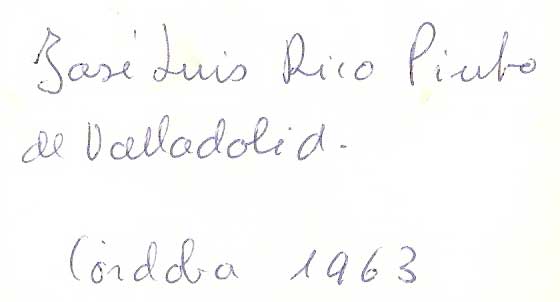 José Luis Rico Pinto
de Valladolid.
Córdoba 1963